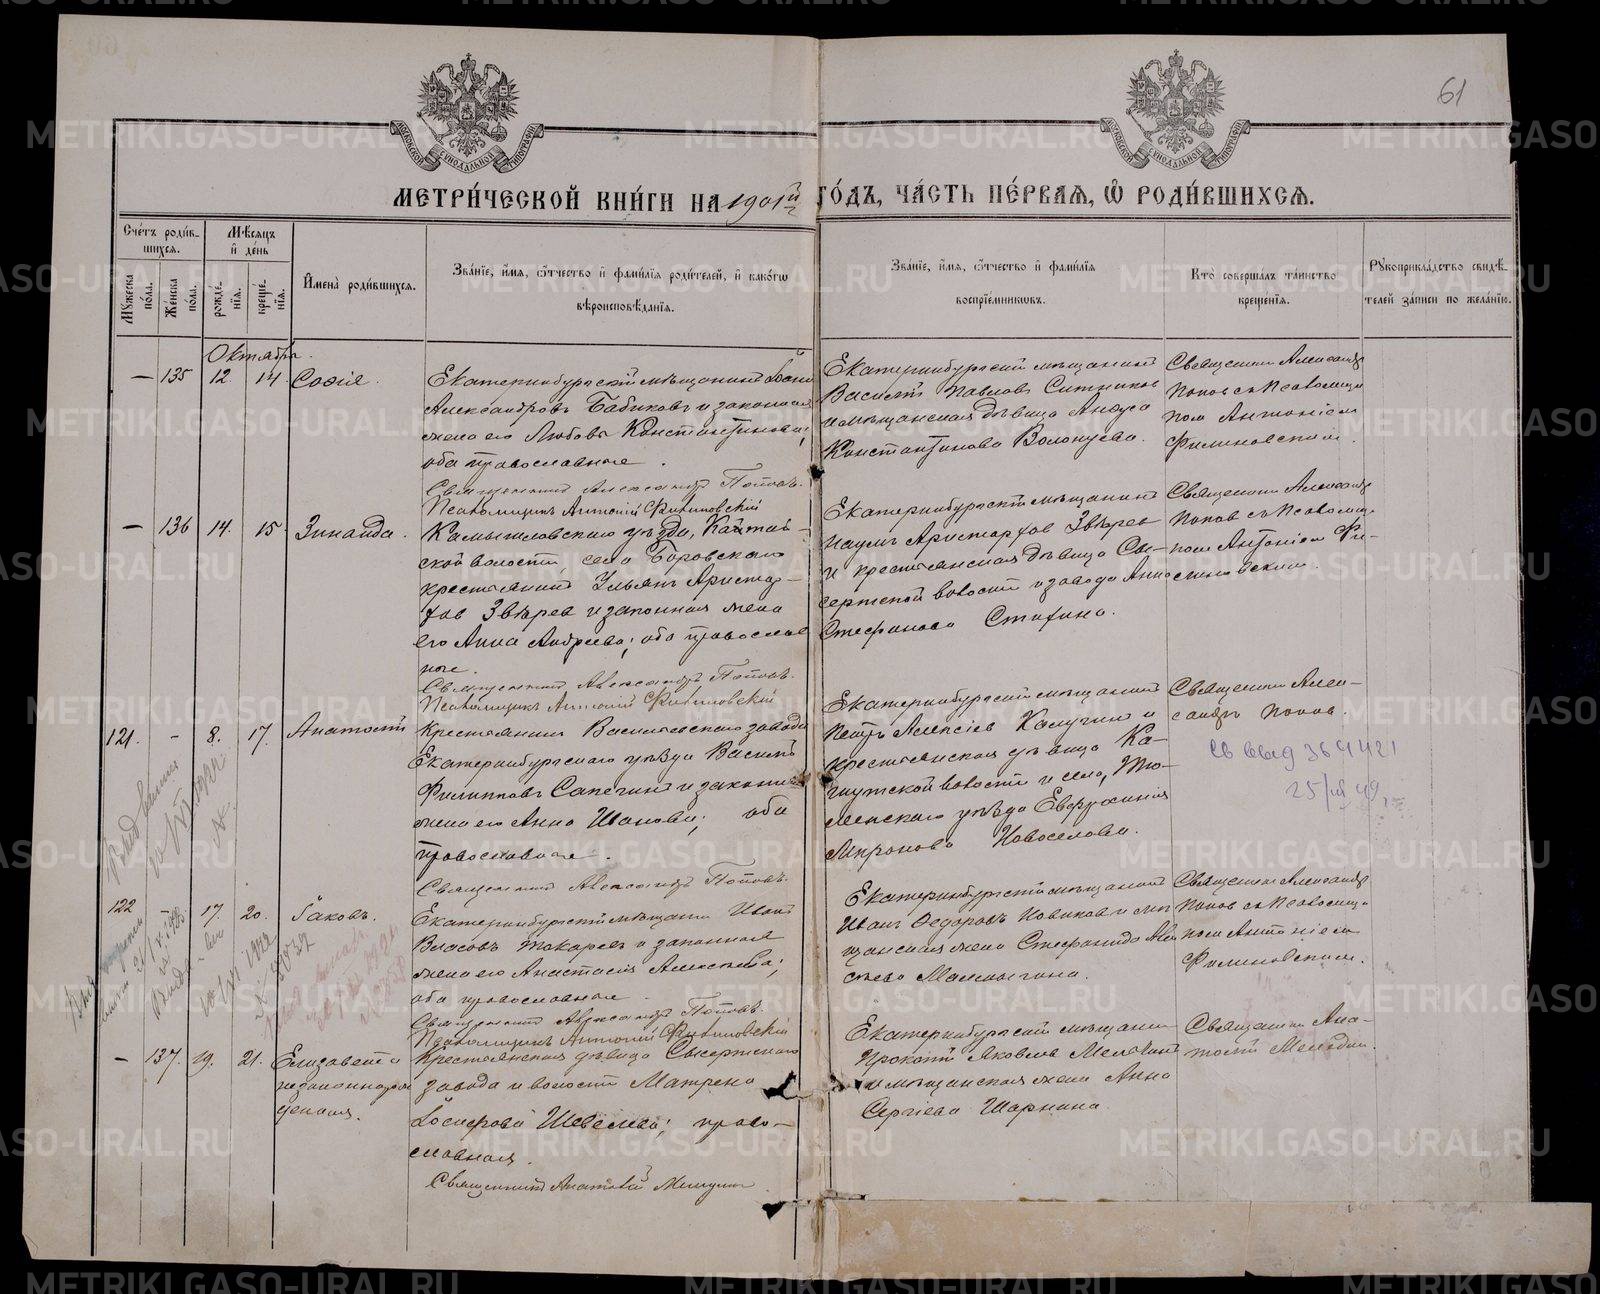 61
МЕТРИЧЕСКОЙ КНИГИ НА 1901й ГОДЪ, ЧАСТЬ ПЕРВАЯ, Ѡ РОДИВШИХСЯ.
Счетъ родившихся.
Мужеска пола.
Женска пола.
Мѣсяцъ и день
рожденія.
крещенія.
Имена родившихся.
Званіе, имя, отчество и фамилія родителей, и какогѡ вѣроисповѣданія.
Званіе, имя, отчество и фамилія воспріемниковъ.
Кто совершалъ таинство крещенія.
Рукоприкладство свидѣтелей записи по желанію.
Октябрь.
— 135 12 14 Софія.
Екатеринбургскій мѣщанинъ Іосифъ
Александровъ Бабиковъ и законная
жена его Любовь Константинова;
оба православные.
Священникъ Александръ Поповъ.
Псаломщикъ Антоній Филиновскій
Екатеринбургскій мѣщанинъ
Василій Павловъ Ситников
и мѣщанская дѣвица Анфуса
Константинова Волокуева.
Священник Александр
Попов съ Псаломщи
ком Антоніем
Филиновским.
— 136 14. 15 Зинаида.
Камышловскаго уѣзда,
ской волости, села Боровскаго
крестьянинъ Ульянъ Аристар-
хов Звѣрев и законная жена
его Анна Андреева; оба православ
ные.
Священникъ Александръ Поповъ.
Псаломщикъ Антоній Филиновскій
Екатеринбургскій мѣщанинъ
Наумъ Аристархов Звѣрев
и крестьянская дѣвица Сы-
сертской волости и завода Анна
Стефанова Стахина.
Священник Александр
Попов съ Псаломщи
ком Антоніем Фи-
линовским.
121. - 8. 17. Анатолій
Крестьянин Васильевскаго завода
Екатеринбургскаго уѣзда Василій
Филиппов Сапегин и законная
жена его Анна Иванова; оба
православные.
Священникъ Александръ Поповъ.
Екатеринбургскій мѣщанин
Петръ Алексіев Калугин и
крестьянская дѣвица Ка-
волости и села, Тю-
менскаго уѣзда Евфросинія
Миронова Новоселова.
Священник Алек-
сандр Попов.
Св выд 369421
25/ 49
122 17. 20. Іаковъ.
Екатеринбургскій мѣщанин Иванъ
Власовъ Токарев и законная
жена его Анастасія Алексѣева;
оба православные.
Священникъ Александръ Поповъ.
Псаломщикъ Антоній Филиновскій
Екатеринбургскій мѣщанин
Иван Федоровъ Новиков и мѣ
щанская жена Стефанида Але
сѣева Мамыгина.
Священник Александр
Попов съ Псаломщи
ком Антоніем
Филиновским.
— 137. 19. 21. Елизавета
незаконнорож
денная.
Крестьянская дѣвица Сысертскаго
завода и волости Матрена
Іосифова Шевелева; право-
славная.
Священникъ Анатолій
Екатеринбургскій мѣщанин
Прокопій Яковлев
и мѣщанская жена Анна
Сергіева Шаркина.
Священник Ана-
толій
METRIKI.GASO-URAL.RU